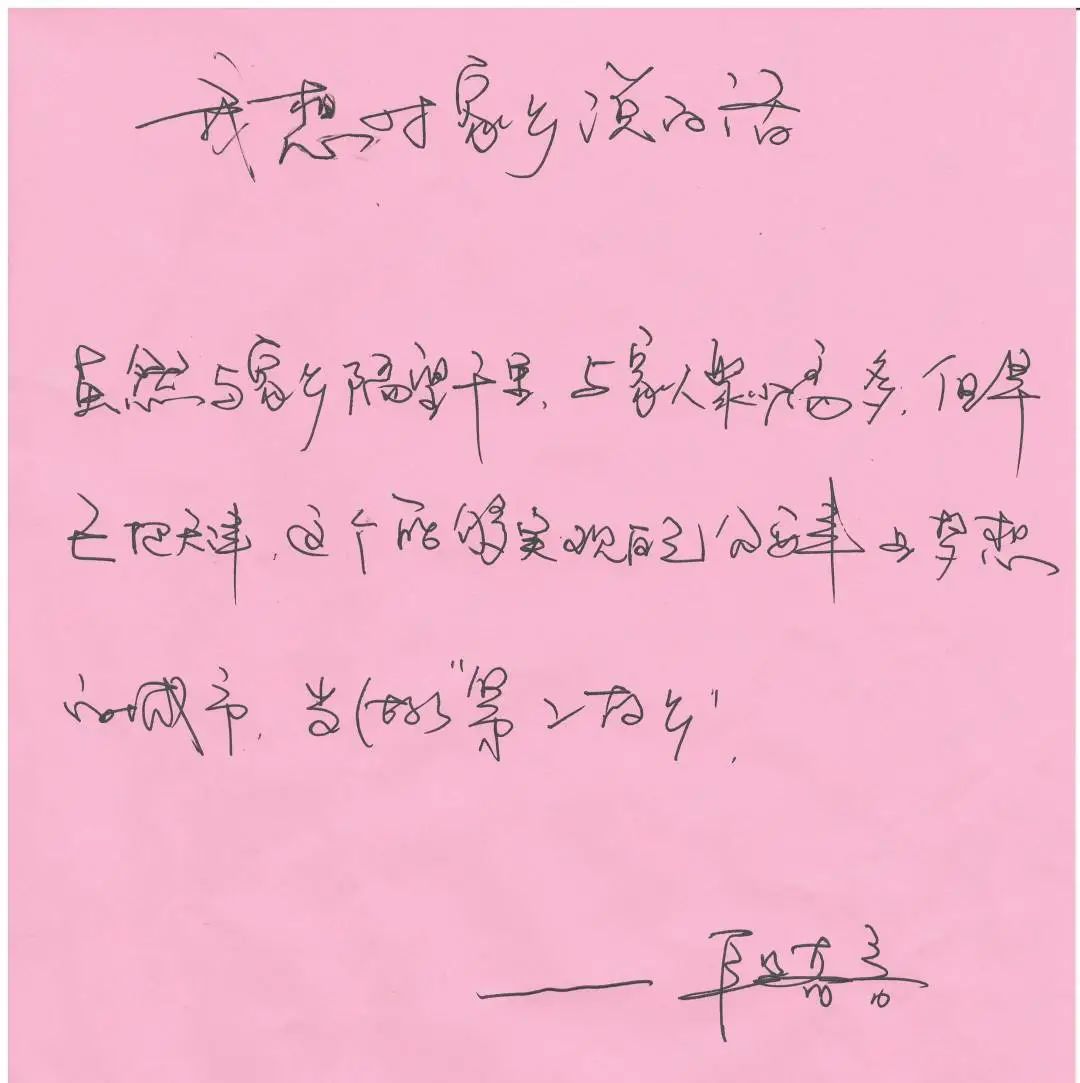 我想对家乡说的话
虽然与家乡隔望千里,与家人聚少离多,但早
已把天津,这个能够实现自己的事与梦想
的城市,当做"第二故乡".
——